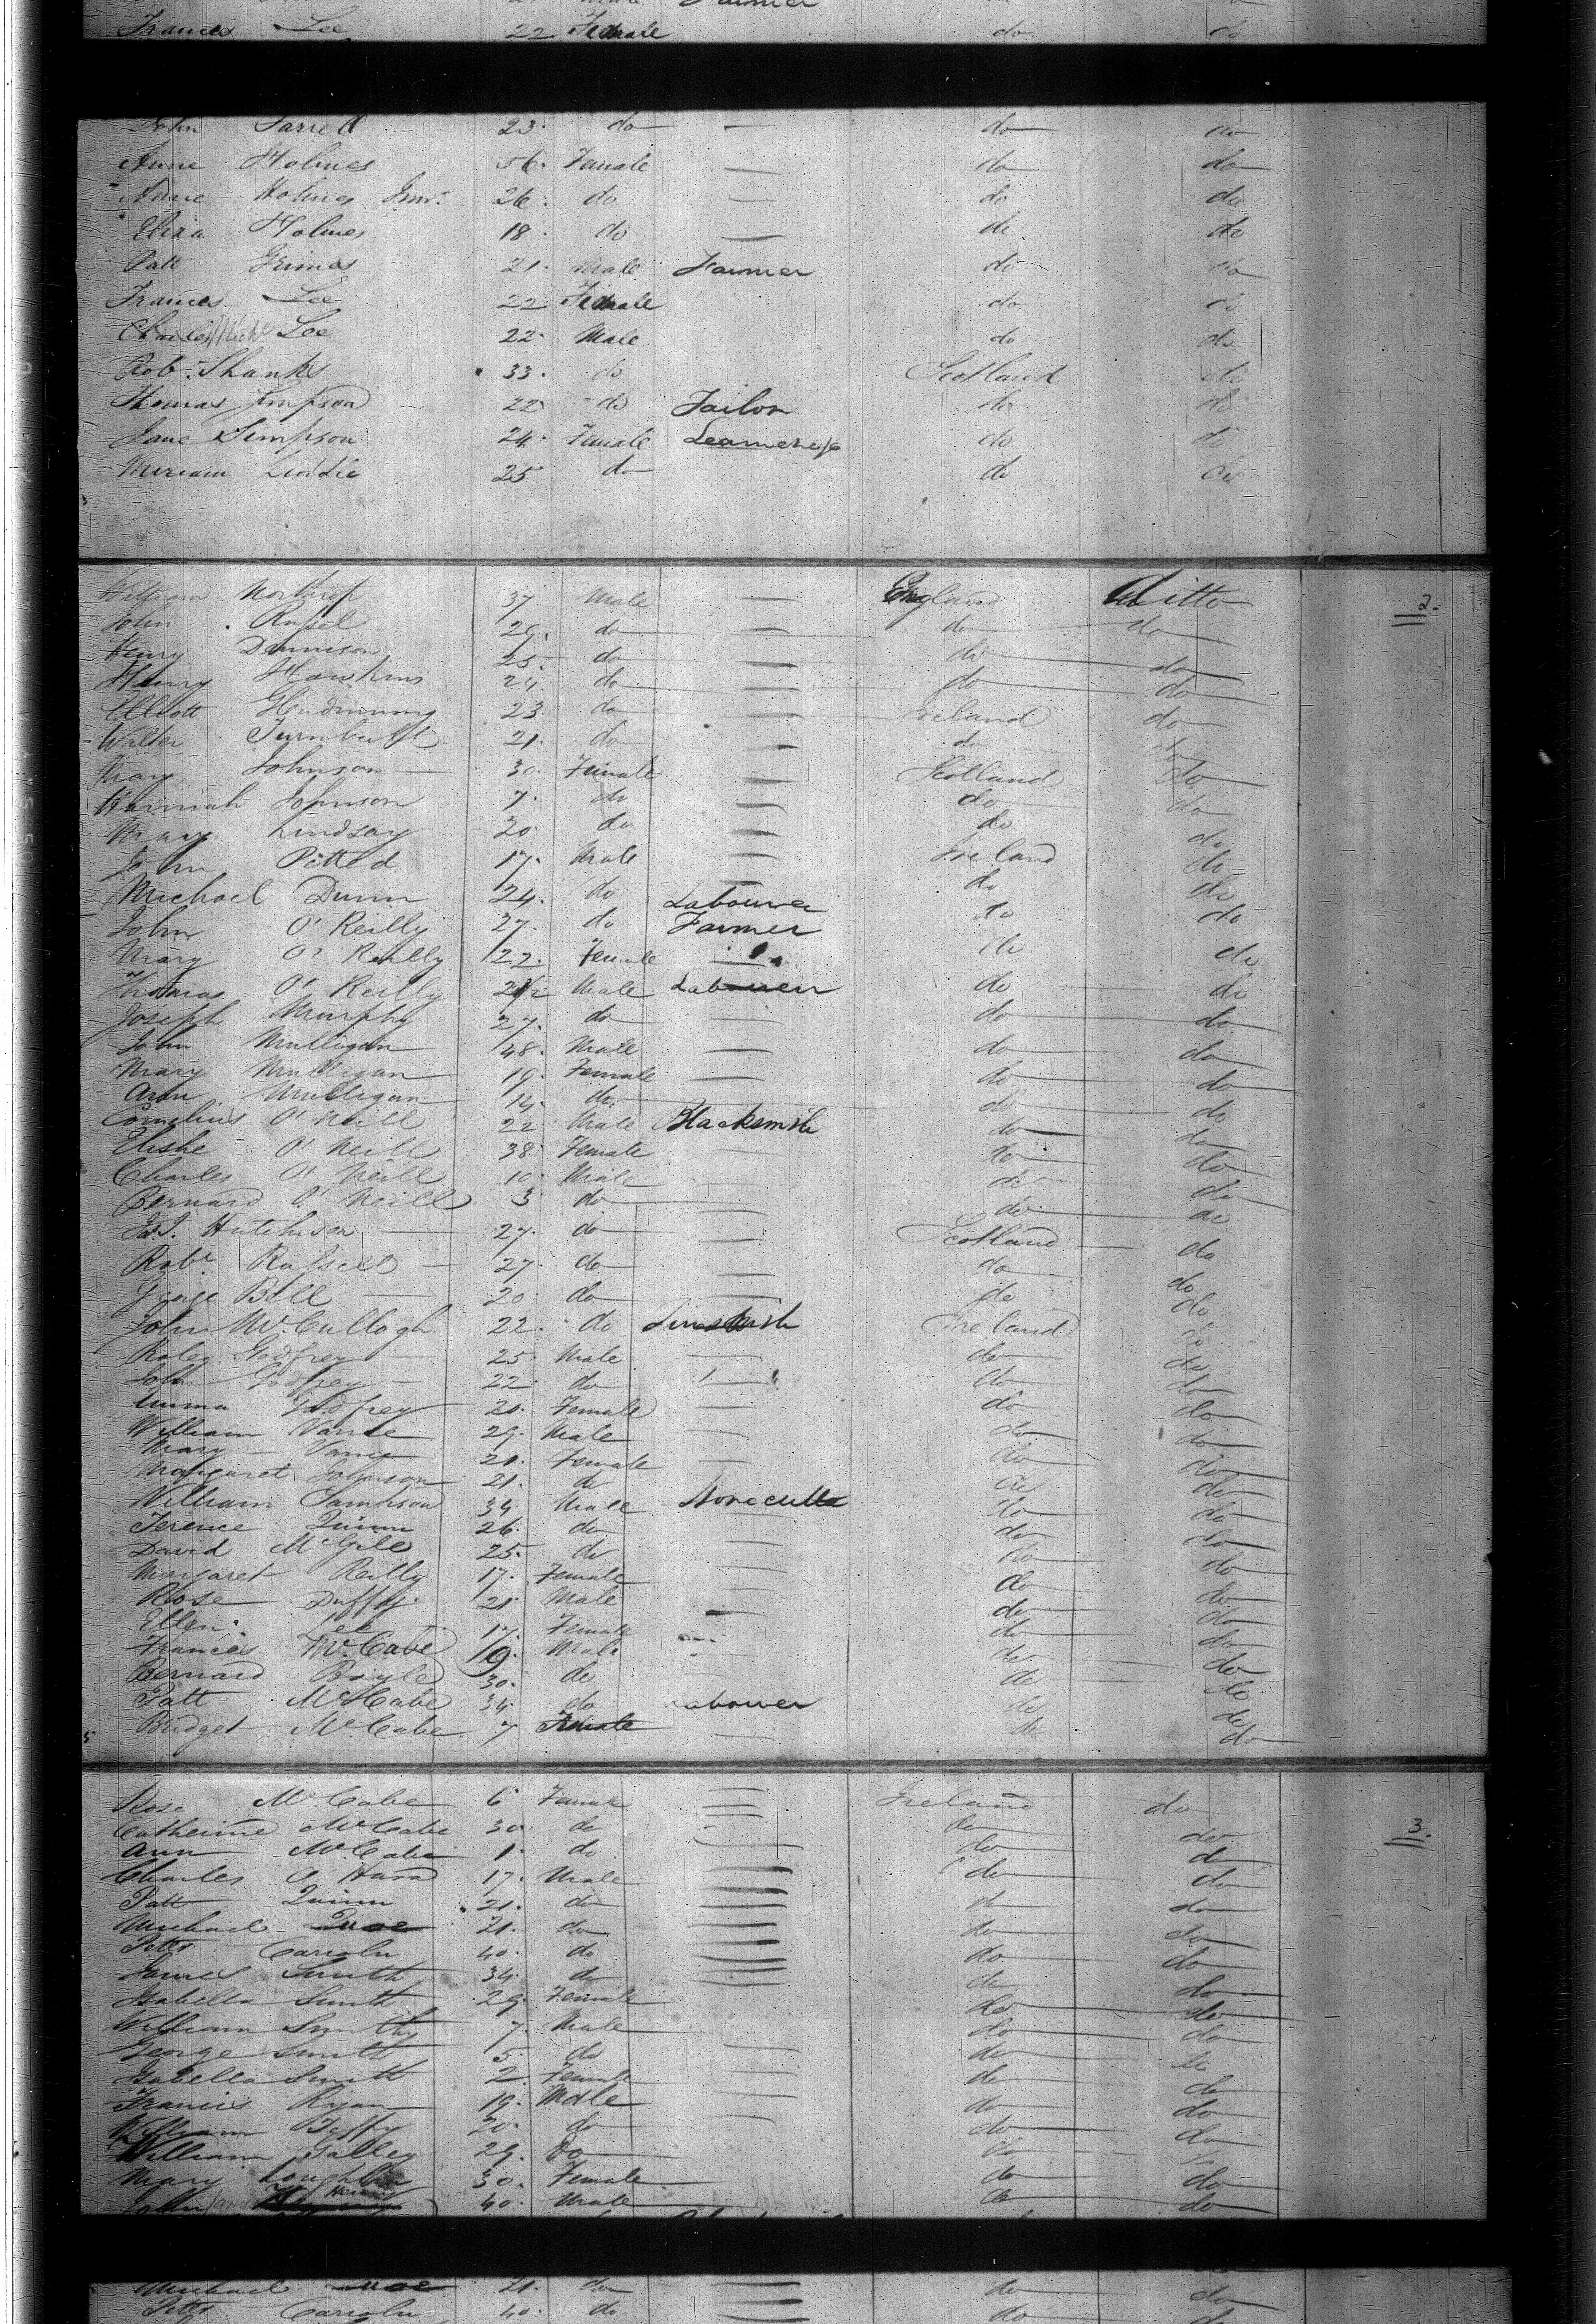 Frances Lee 22 Female do do
John Farrell 23 do — do do
Anne Holmes 56 Female — do do
Anne Holmes Junr. 26 do — do do
Eliza Holmes 18 do — do do
Patt Grimes 21 Male Farmer do do
Frances Lee 22 Female do do
Charles Lee 22 Male do do
Rob. Shanks 33 do Scotland do
Thomas Simpson 22 do Tailor do do
Jane Simpson 24 Female do do
Miriam Liddle 25 do do do
William Northrop 37 Male — England Ditto 2.
John Rusel 29 do — do do
Henry Dennison 25 do — do do
Henry Hawkins 24 do — do do
Elliott Glendinning 23 do — Ireland do
Walter Turnbull 21 do — do do
Mary Johnson 30 Female — Scotland do
Hannah Johnson 7 do — do do
Mary Lindsay 20 do — do do
John 17 Male — Ireland do
Michael Dunn 24 do Labourer do do
John O'Reilly 27 do Farmer do do
Mary O'Reilly 22 Female — do do
Thomas O'Reilly Male Labourer do do
Joseph Murphy 27 do — do do
John Mulligan 48 Male — do do
Mary Mulligan 19 Female — do do
Ann Mulligan 14 do — do do
Cornelius O'Neill 22 Male Blacksmith do do
O'Neill 38 Female — do do
Charles O'Neill 10 Male — do do
Bernard O'Neill 3 do — do do
Hutchison 27 do — Scotland do
Robt. Russell 27 do — do do
George Bell 20 do — do do
John McCullogh 22 do Ireland do
Godfrey 25 Male — do do
John Godfrey 22 do — do do
Emma Godfrey 20 Female — do do
William Vance 29 Male — do do
Mary Vance 21 Female — do do
Margaret Johnson 21 do do do
William Sampson 34 Male do do
Terence Quinn 26 do — do do
David McGile 25 do — do do
Margaret Reilly 17 Female — do do
Rose Duffy 21 Male — do do
Ellen Lee 17 Female do do
Frances McCabe 19 Male do do
Bernard Boyle 30 do — do do
Patt McCabe 34 do Labourer do do
Bridget McCabe 7 Female — do do
Rose McCabe 6 Female — Ireland do 3.
Catherine McCabe 30 do — do do
Ann McCabe 1 do — do do
Charles O'Hara 17 Male — do do
Patt Quinn 21 do — do do
Michael 21 do — do do
40 do — do do
James Smith 34 do — do do
Isabella Smith 29 Female do do
William Smith 7 Male do do
George Smith 5 do do do
Isabella Smith 2 Female do do
Francis Ryan 19 Male do do
William 20 do do do
William 29 do do do
Mary Loughlin 30 Female do do
John 40 Male do do
Michael 21 do — do do
40 do — do do